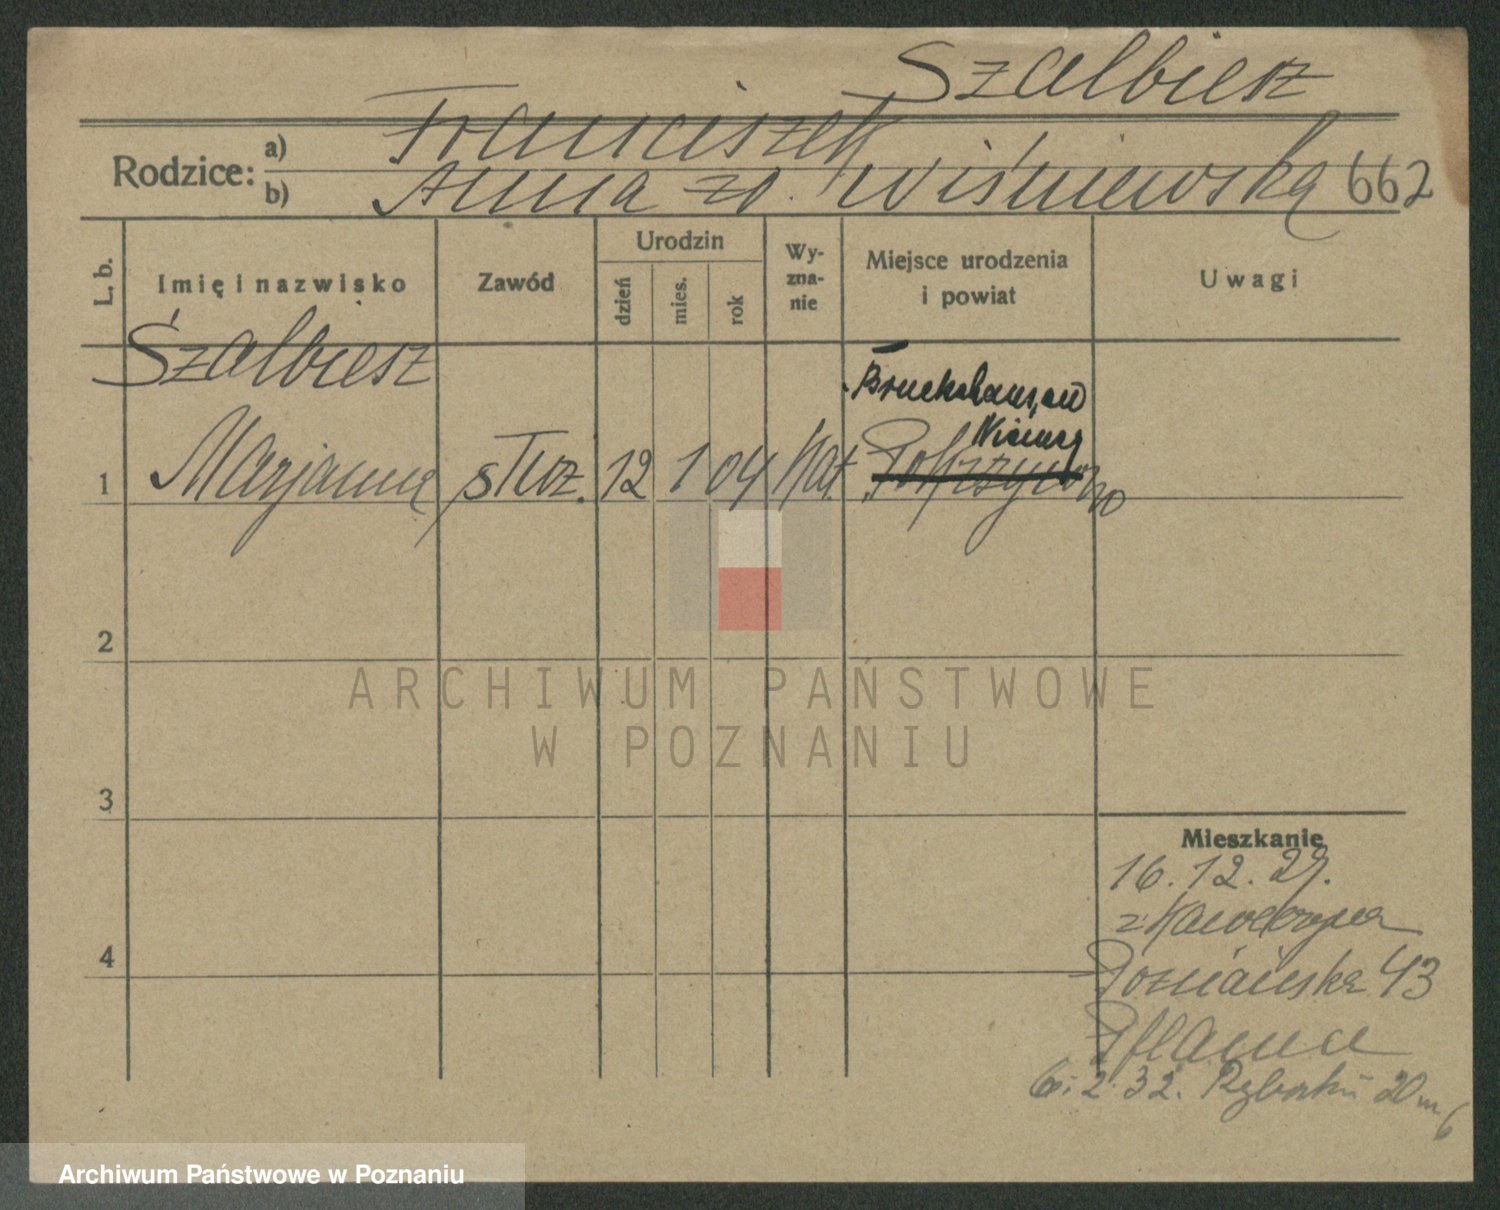 Szalbierz
Rodzice:
a) Franciszek
b) Anna zd. Wiśniewska 662
L. b.
Imię i nazwisko
Zawód
Urodzin
dzień
mies.
rok
Wy-
zna-
nie
Miejsce urodzenia
i powiat
Uwagi
Szalbierz
Bruckhausen
Niemcy
1 Marjanna służ. 12 1 04 kat. Pokrzywno
2
3
4
Mieszkanie
16.12.29.
Poznańska 43
6.2.32. 20 m 6
ARCHIWUM PAŃSTWOWE
W POZNANIU
Archiwum Państwowe w Poznaniu